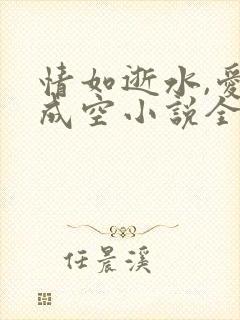 情如逝水,愛
成空小說全
任晨溪